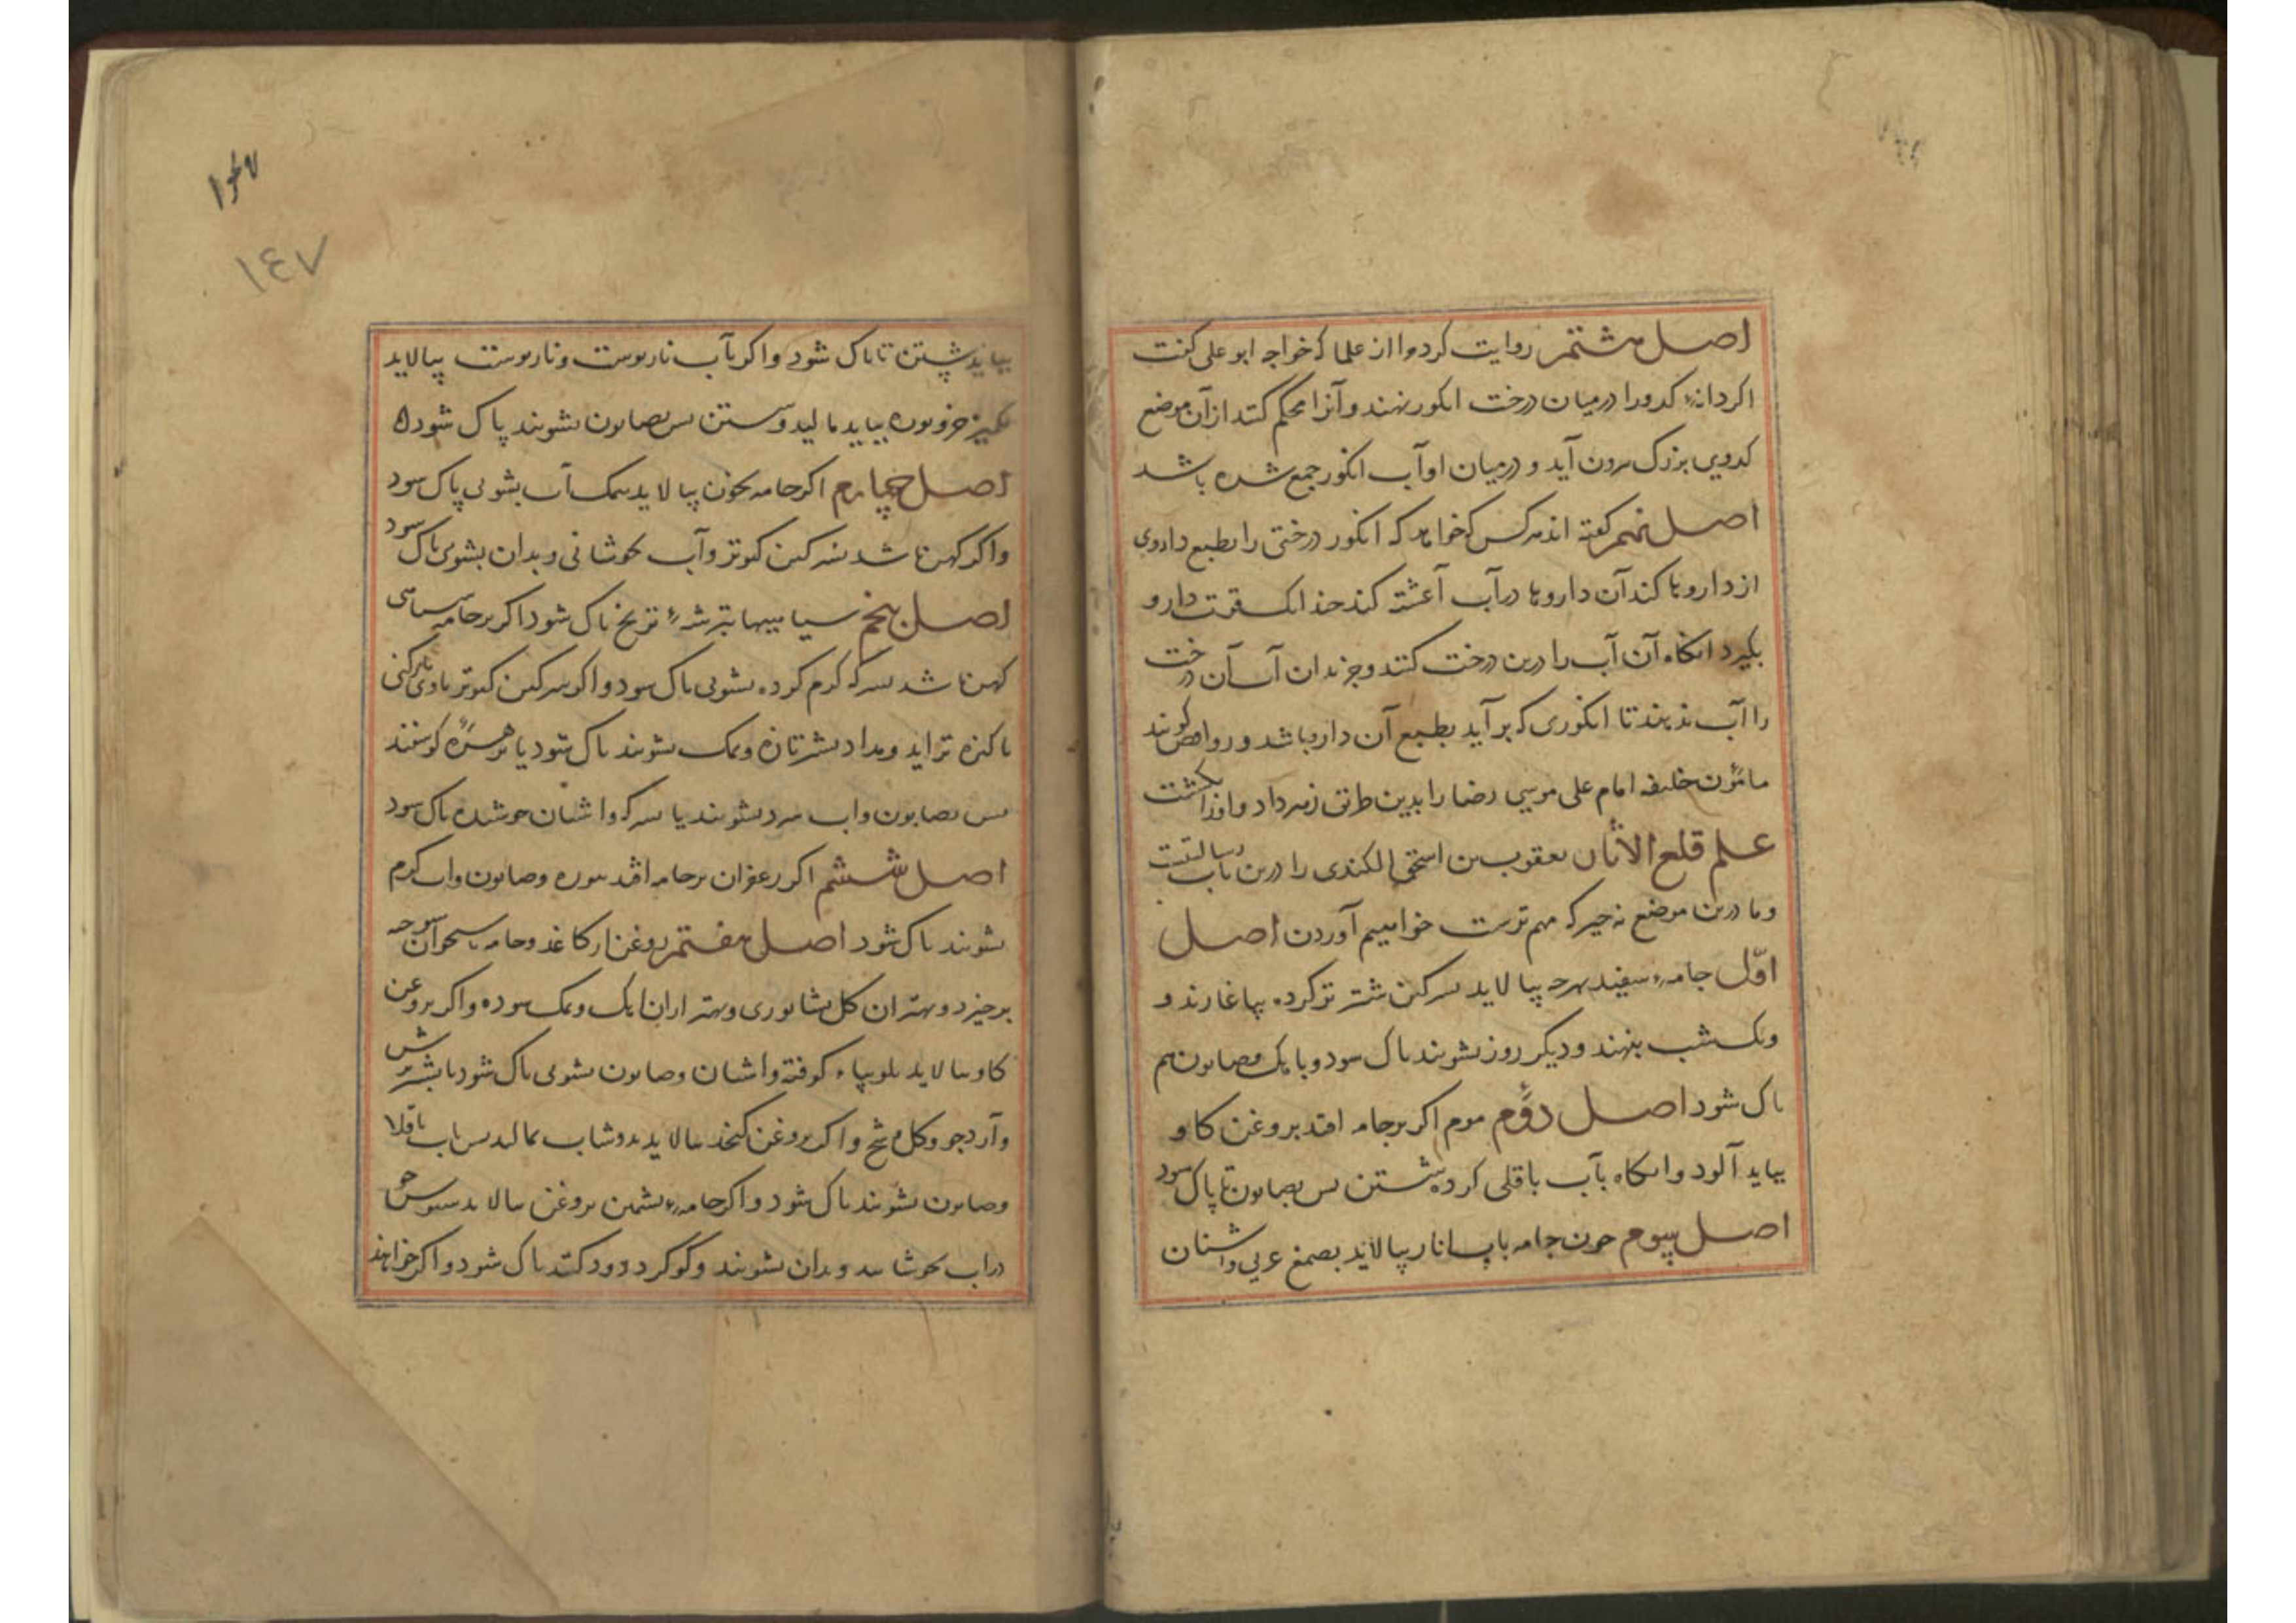 اصل هشتم روایت کردوا از علما که خواجه ابو علی گفت
اگر دانهٔ کدو را درمیان درخت انکور نهند و آنرا محکم کنند از آن موضع
کدویی بزرک برون آید و درمیان او آب انکور جمع شده باشد
اصل نهم گفته اند هرکس که خواهد که انکور درختی را بطبع داروی
از داروها کند آن داروها در آب آغشته کند چندانک قوت دارو
بگیرد انکاه آن آب را درین درخت کنند و جز بدان آب آن درخت
را آب ندهند تا انکوری که برآید بطبع آن دارو باشد و روافض گویند
مامون خلیفه امام علی موسی رضا را بدین طریق زهر داد و او را بکشت
علم قلع الاثار یعقوب بن اسحق الکندی را درین باب رسالتیست
و ما درین موضع هرچیز که مهم ترست خواهیم آوردن اصل
اوّل جامهٔ سفید بهرچه بیالاید سرکین شتر تر کرده بیاغارند و
ویکشب بنهند و دیکر روز بشویند پاک شود و بایک وصابون هم
پاک شود اصل دوم موم اکر بر جامه افتد بروغن کاو
بیاید آلود وانکاه بآب باقلی کرده شستن پس بصابون تا پاک شود
اصل سیوم چون جامه باب انار بیالاید بصمغ عربی واشنان
۱۴۷
بیاید شستن تا پاک شود واکر بآب نارپوست ونارپوست بیالاید
بیاید مالید و شستن پس بصابون بشویند پاک شود
اصل چهارم اکر جامه بخون بیالاید بنمک آب بشویی پاک شود
واکر کهن باشد سرکین کبوتر وآب بجوشانی و بدان بشویی پاک شود
اصل پنجم سیاهیها بترشهٔ ترنج پاک شود اکر بر جامه سیاهی
کهن باشد بسرکه کرم کرده بشویی پاک شود و اکر سرکین کبوتر باوی یار کنی
پاکیزه تر اید ومداد بشیر تازه ونمک بشویند پاک شود یا کوسفند
پس بصابون واب سرد بشویند یا سرکه واشنان جوشیده پاک شود
اصل ششم اکر زعفران بر جامه افتد ببوره وصابون واب کرم
بشویند پاک شود اصل هفتم روغن از کاغد وجامه باستخوان سوخته
برخیزد وبهتر از ان کل نشابوری وبهتر از ان اهک ونمک سوده واکر بروغن
کاو بیالاید بلوبیاء کوفته واشنان وصابون بشویی پاک شود یا بشیر ترش
وآرد جو وکل سرخ واکر بروغن کنجد بیالاید بدوشاب بمالند پس باب باقلا
وصابون بشویند پاک شود واکر جامهٔ پشمین بروغن بیالاید سبوس جو
دراب بجوشانند وبدان بشویند وکوکرد دود کنند پاک شود واکر خواهند